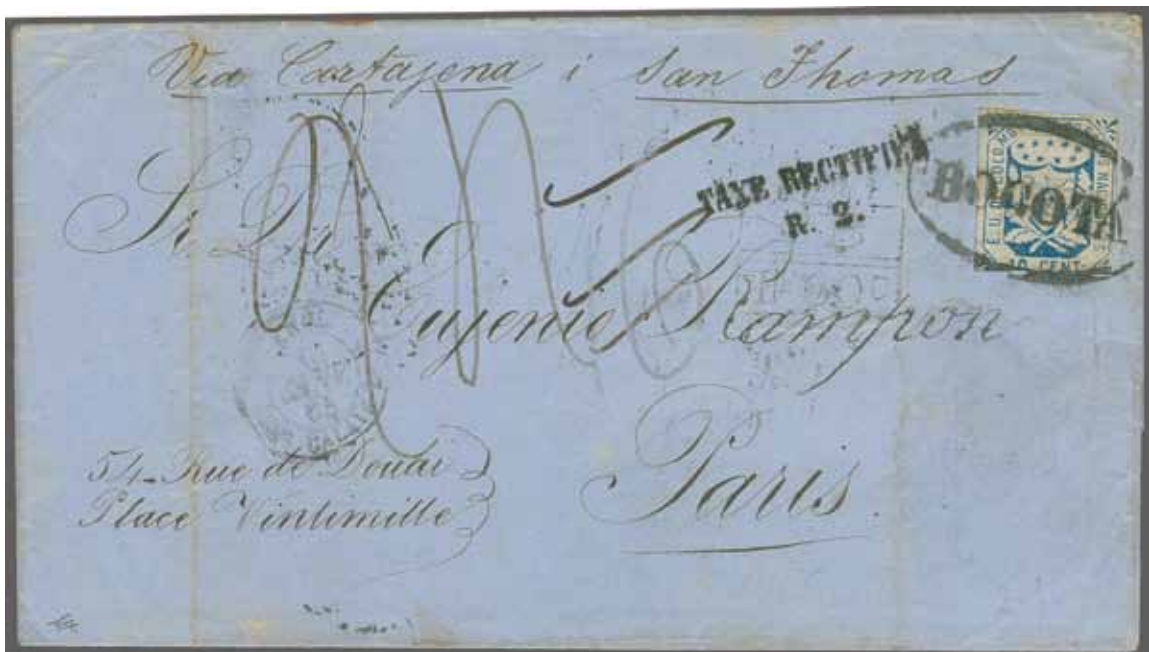 Via Cartajena i San Thomas
TAXE RECTIFIÉE
R. 2.
BOGOTÁ
10 CENT
Sr. Dr.
Eujenio Rampon
Paris
54 - Rue de Douai
Place Vintimille